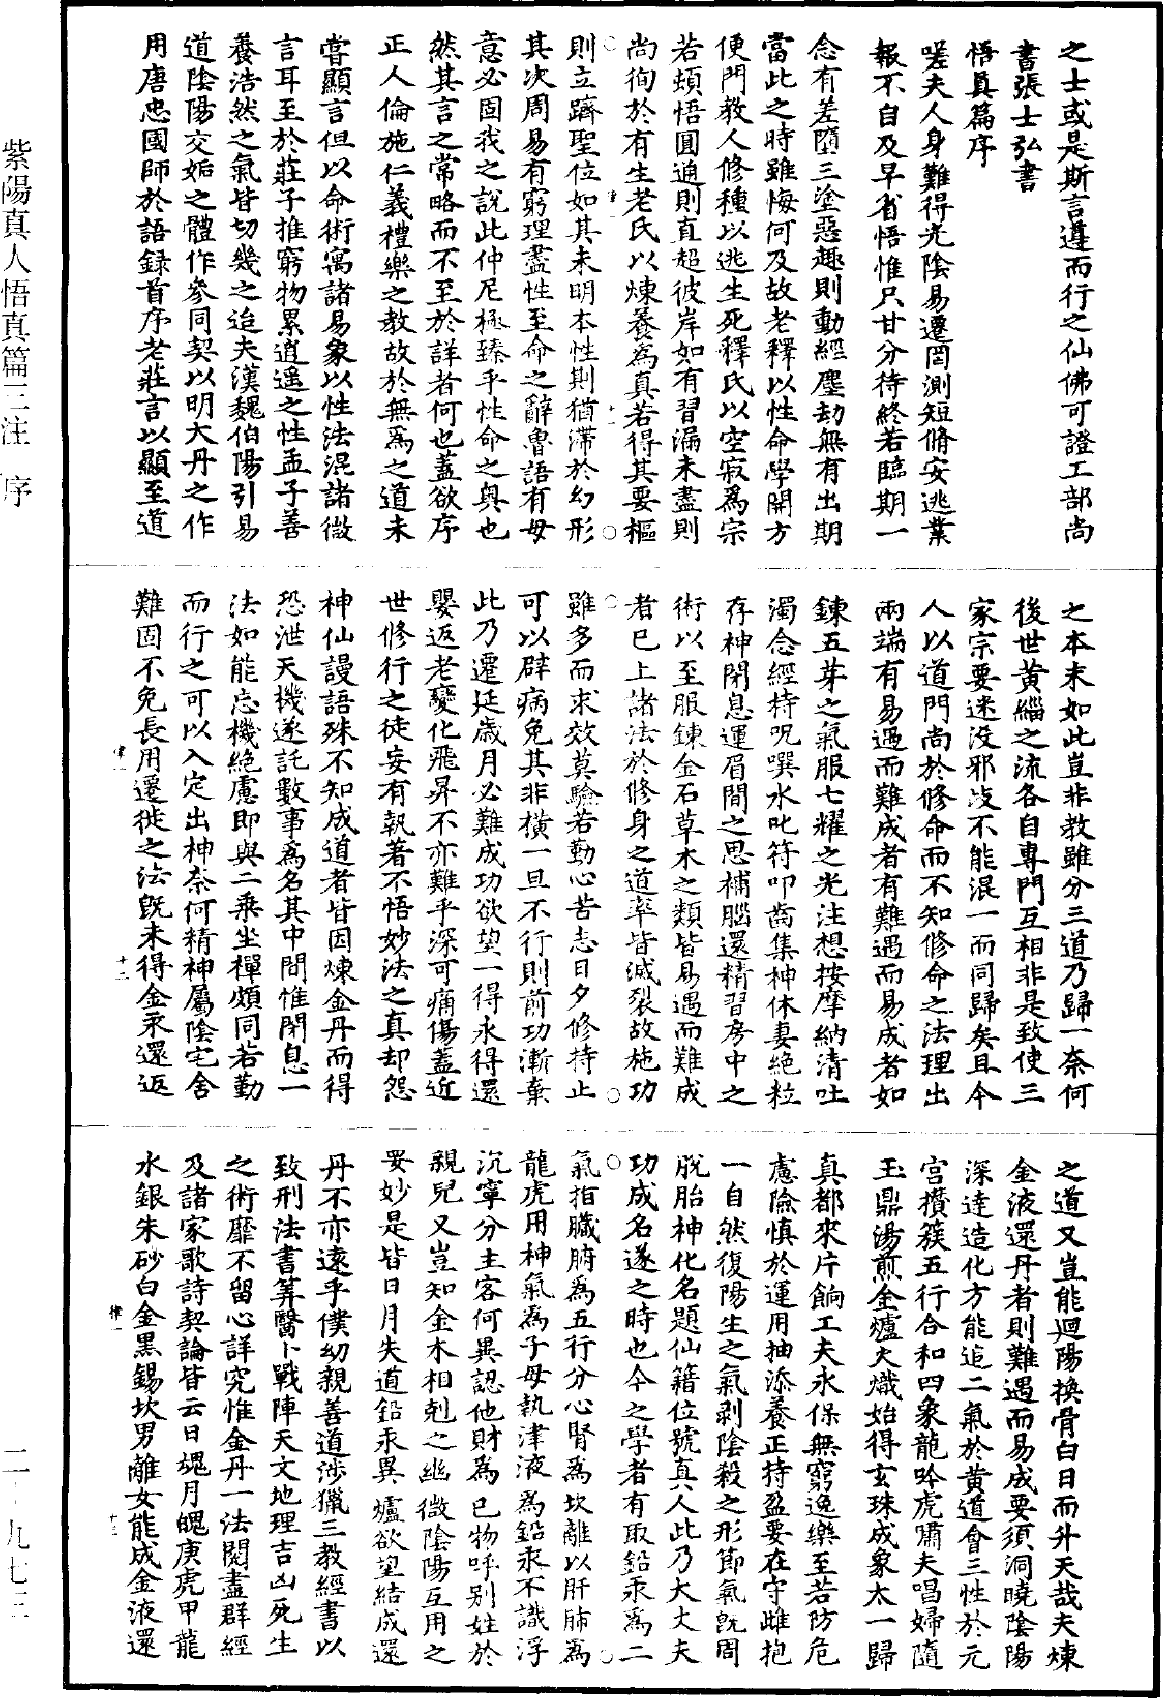 之士或是斯言遵而行之仙佛可證工部尚
書張士弘書
悟真篇序
嗟夫人身難得光陰易遷罔測短脩安逃業
報不自及早省悟惟只甘分待終若臨期一
念有差墮三塗惡趣則動經塵劫無有出期
當此之時雖悔何及故老釋以性命學開方
便門教人修種以逃生死釋氏以空寂為宗
若頓悟圓通則直超彼岸如有習漏未盡則
尚徇於有生老氏以煉養為真若得其要樞
則立躋聖位如其未明本性則猶滯於幻形
其次周易有窮理盡性至命之辭魯語有毋
意必固我之說此仲尼極臻乎性命之奧也
然其言之常略而不至於詳者何也蓋欲序
正人倫施仁義禮樂之教故於無為之道未
嘗顯言但以命術寓諸易象以性法混諸微
言耳至於莊子推窮物累逍遥之性孟子善
養浩然之氣皆切幾之迨夫漢魏伯陽引易
道陰陽交姤之體作參同契以明大丹之作
用唐忠國師於語錄首序老莊言以顯至道
之本末如此豈非教雖分三道乃歸一奈何
後世黃緇之流各自專門互相非是致使三
家宗要迷沒邪歧不能混一而同歸矣且今
人以道門尚於修命而不知修命之法理出
兩端有易遇而難成者有難遇而易成者如
鍊五芽之氣服七耀之光注想按摩納清吐
濁念經持呪噀水叱符叩齒集神休妻絶粒
存神閉息運眉間之思補腦還精習房中之
術以至服鍊金石草木之類皆易遇而難成
者已上諸法於修身之道率皆滅裂故施功
雖多而求效莫驗若勤心苦志日夕修持止
可以辟病免其非橫一旦不行則前功漸棄
此乃遷延歲月必難成功欲望一得永得還
嬰返老變化飛昇不亦難乎深可痛傷蓋近
世修行之徒妄有執著不悟妙法之真却怨
神仙謾語殊不知成道者皆因煉金丹而得
恐泄天機遂託數事為名其中間惟閉息一
法如能忘機絶慮即與二乘坐禪頗同若勤
而行之可以入定出神奈何精神屬陰宅舍
難固不免長用遷徙之法既未得金汞還返
之道又豈能迴陽換骨白日而升天哉夫煉
金液還丹者則難遇而易成要須洞曉陰陽
深達造化方能追二氣於黃道會三性於元
宮攢簇五行合和四象龍吟虎嘯夫唱婦隨
玉鼎湯煎金爐火熾始得玄珠成象太一歸
真都來片餉工夫永保無窮逸樂至若防危
慮險慎於運用抽添養正持盈要在守雌抱
一自然復陽生之氣剥陰殺之形節氣既周
脫胎神化名題仙籍位號真人此乃大丈夫
功成名遂之時也今之學者有取鉛汞為二
氣指臟腑為五行分心腎為坎離以肝肺為
龍虎用神氣為子母執津液為鉛汞不識浮
沉寧分主客何異認他財為己物呼別姓於
親兒又豈知金木相剋之幽微陰陽互用之
要妙是皆日月失道鉛汞異爐欲望結成還
丹不亦遠乎僕幼親善道涉獵三教經書以
致刑法書筭醫卜戰陣天文地理吉凶死生
之術靡不留心詳究惟金丹一法閱盡群經
及諸家歌詩契論皆云日魂月魄庚虎甲龍
水銀朱砂白金黑錫坎男離女能成金液還
紫陽真人悟真篇三注 序
二-九七三
律一
十一
律一
十二
律一
十三